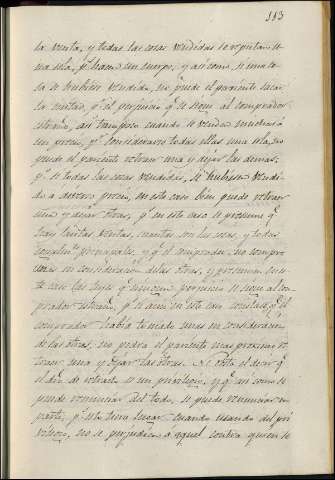 113
la venta, y todas las cosas vendidas se reputan u-
na sola, pr. hacer un cuerpo, y así como si una ca-
sa se hubiese vendido, no puede el pariente sacar
la mitad, pr. el perjuicio qe. se sigue al comprador
estraño, así tampoco cuando se venden muchas á
un precio, pr. considerarse todas ellas una sola, no
puede el pariente retraer una y dejar las demas.
pr. si todas las cosas vendidas, se hubiesen vendi-
do a diverso precio, en este caso bien puede retraer
una y dejar otras, pr. en este caso se presume qe.
hay tantas ventas, cuantas son las cosas, y todas
igualmte. principales, y qe. el comprador no compro
unas en consideracion de las otras, y por
este caso las leyes qe. ningun perjuicio se sigue al com-
prador estraño, pr. si aun en este caso constase, qe. el
comprador había tomado unas en consideracion
de las otras, no podrá el pariente mas proximo re-
traer una y dejar las otras. Ni obsta el decir qe.
el dro. de retracto es un privilegio, y qe. así como se
puede renunciar del todo, se puede renunciar en
parte; pr. esto tiene lugar cuando usando del pri-
vilegio, no se perjudica á aquel contra quien se